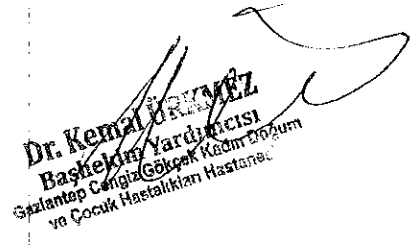 Dr. Kemal ÜRKMEZ
Başhekim Yardımcısı
Gaziantep Cengiz Gökçek Kadın Doğum
ve Çocuk Hastalıkları Hastanesi